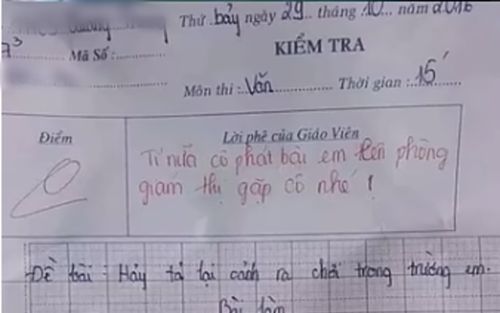 Thứ bảy ngày 29 tháng 10 năm 2016
7³ Mã Số:
KIỂM TRA
Môn thi: Văn Thời gian: 15'
Điểm
Lời phê của Giáo Viên
Tí nữa cô phát bài em lên phòng
giám thị gặp cô nhé !
Đề bài: Hãy tả lại cảnh ra chơi trong trường em.
Bài làm